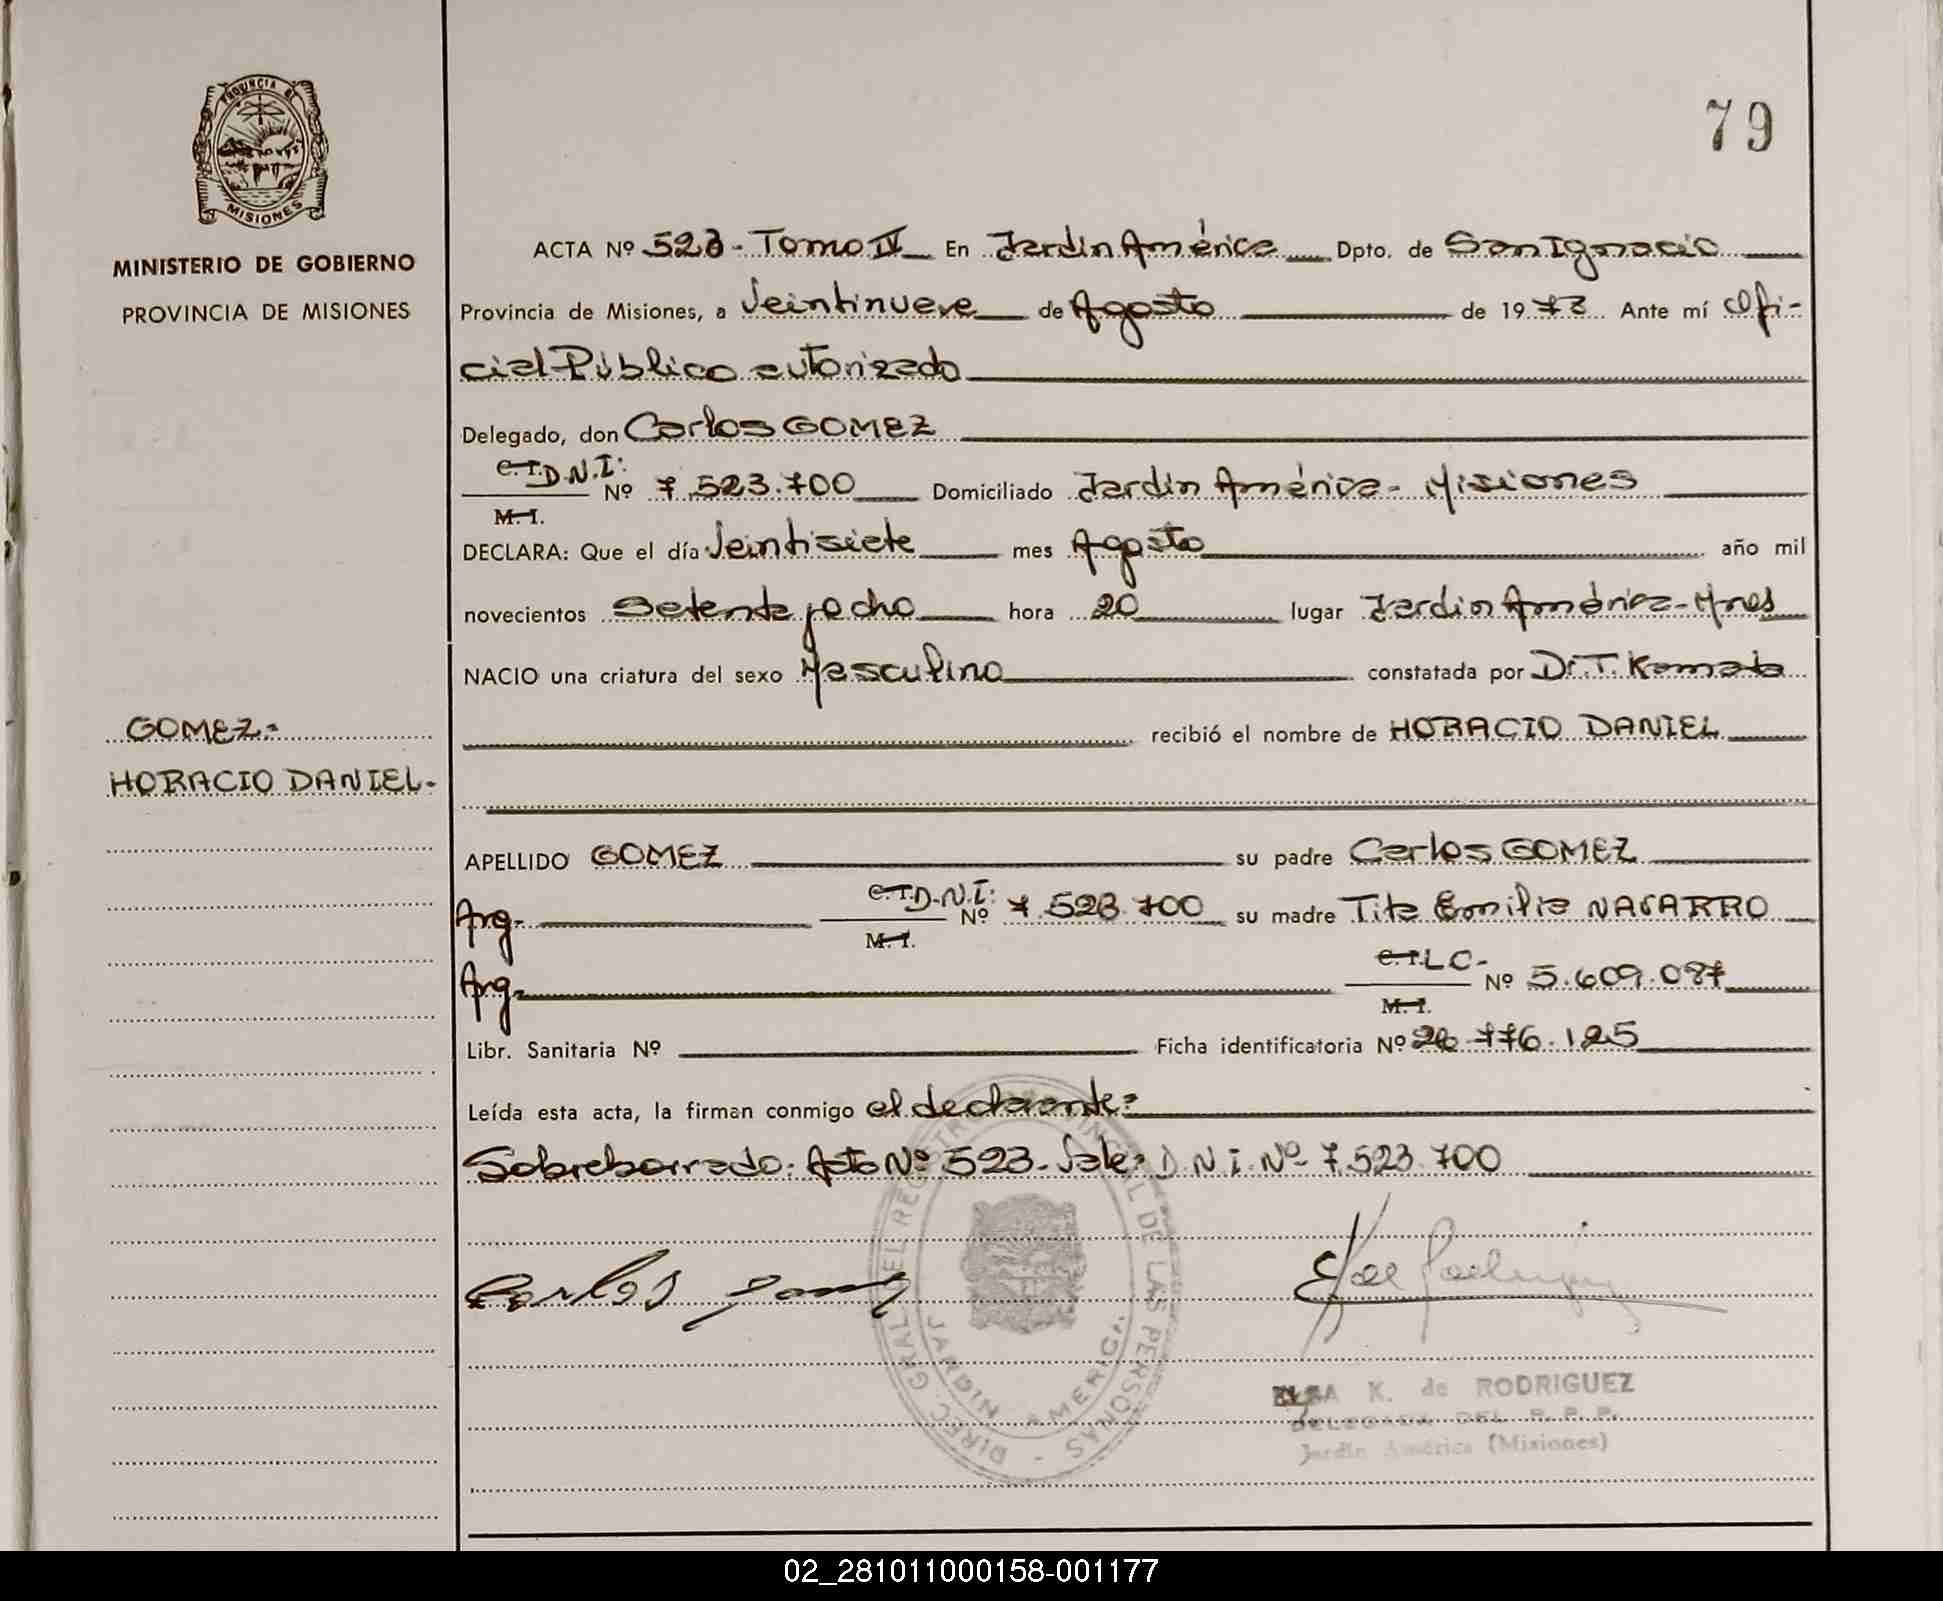 79
PROVINCIA DE
MISIONES
MINISTERIO DE GOBIERNO
PROVINCIA DE MISIONES
ACTA Nº 523 - Tomo IV En Jardín América Dpto. de San Ignacio
Provincia de Misiones, a Veintinueve de Agosto de 1978 Ante mí Ofi-
cial Público autorizado
Delegado, don Carlos GOMEZ
C.I. D.N.I: Nº 7.523.700 Domiciliado Jardín América - Misiones
M.I.
DECLARA: Que el día Veintisiete mes Agosto año mil
novecientos Setenta y ocho hora 20 lugar Jardín América - Mnes
NACIO una criatura del sexo Masculino constatada por Dr. T. Kamada
GOMEZ.-
recibió el nombre de HORACIO DANIEL
HORACIO DANIEL.-
APELLIDO GOMEZ su padre Carlos GOMEZ
Arg. C.I. D.N.I: Nº 7.523.700 su madre Tita Emilia NAVARRO
M.I.
Arg. C.I. L.C.- Nº 5.609.087
M.I.
Libr. Sanitaria Nº Ficha identificatoria Nº 26.776.125
Leída esta acta, la firman conmigo el declarante:
Sobreborrado: Acta Nº 523 - Vale: D.N.I. Nº 7.523.700
Carlos Gomez
DIREC. GRAL. DEL REGISTRO PROVINCIAL DE LAS PERSONAS -
JARDIN AMERICA
ELSA K. de RODRIGUEZ
DELEGADA DEL R.P.P.
Jardín América (Misiones)
02_281011000158-001177